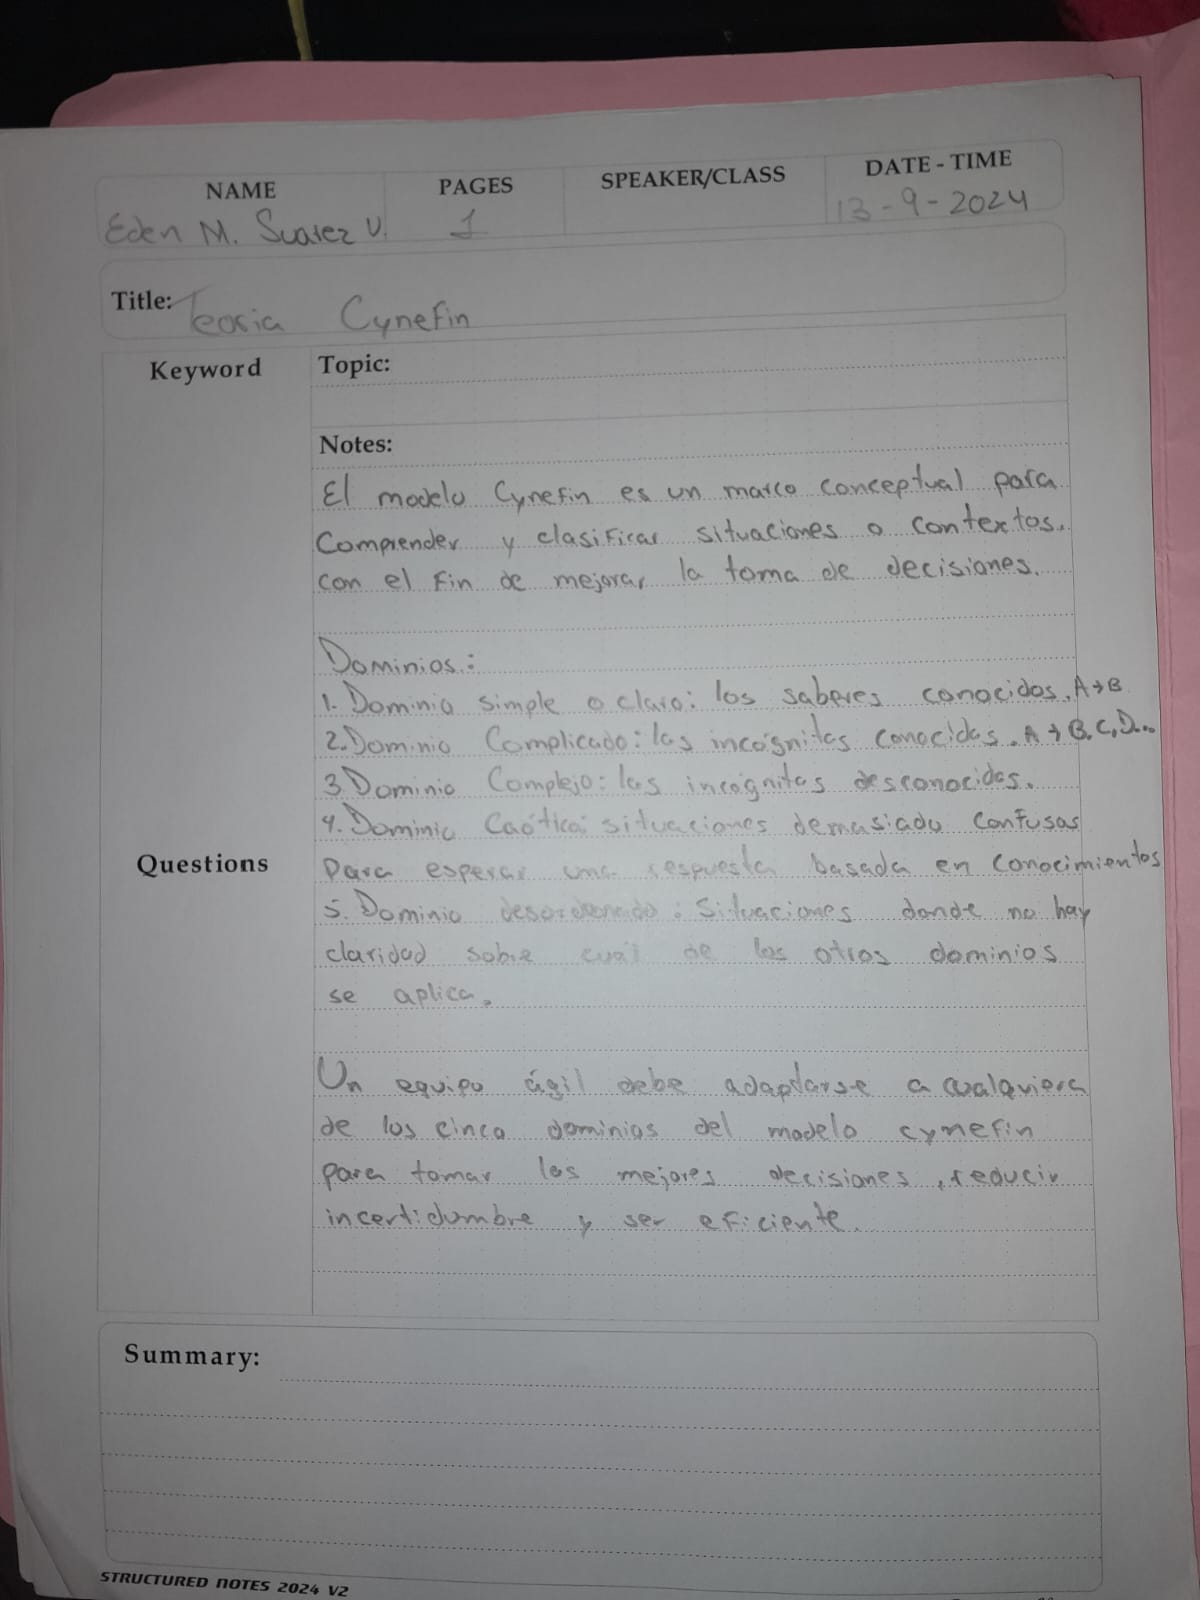 NAME PAGES SPEAKER/CLASS DATE - TIME
Eden M. Suarez V. 1 13-9-2024
Title: Teoria Cynefin
Keyword Topic:
Notes:
El modelo Cynefin es un marco conceptual para
Comprender y clasificar situaciones o contextos.
con el fin de mejorar la toma de decisiones.
Dominios:
1. Dominio simple o claro: los saberes conocidos. A→B
2. Dominio Complicado: las incógnitas conocidas. A → B, C, D...
3. Dominio Complejo: las incógnitas desconocidas.
4. Dominio Caótico: situaciones demasiado confusas
Questions
Para esperar una respuesta basada en conocimientos
5. Dominio desordenado: Situaciones donde no hay
claridad sobre cual de los otros dominios
se aplica.
Un equipo ágil debe adaptarse a cualquiera
de los cinco dominios del modelo cynefin
para tomar las mejores decisiones, reducir
incertidumbre y ser eficiente.
Summary:
STRUCTURED NOTES 2024 V2